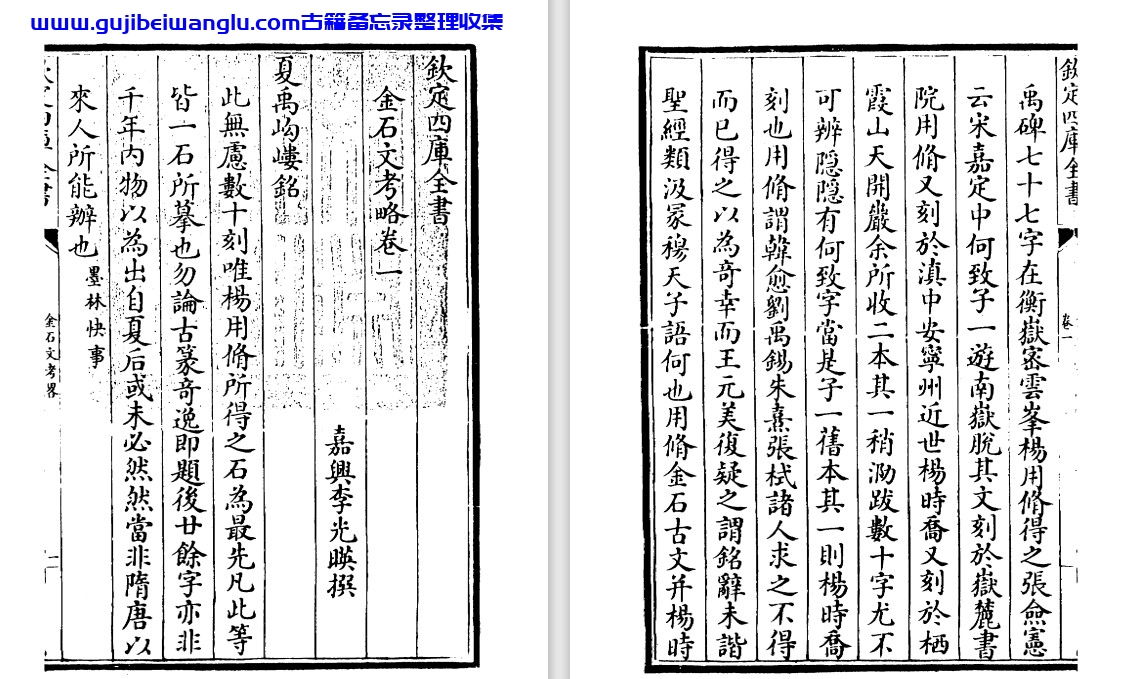 www.gujibeiwanglu.com古籍备忘录整理收集
欽定四庫全書
金石文考略卷一
嘉興李光暎撰
夏禹岣嶁銘
此無慮數十刻唯楊用脩所得之石為最先凡此等
皆一石所摹也勿論古篆奇逸即題後廿餘字亦非
千年内物以為出自夏后或未必然然當非隋唐以
來人所能辦也墨林快事
金石文考畧
一
欽定四庫全書
卷一
禹碑七十七字在衡嶽密雲峯楊用脩得之張僉憲
云宋嘉定中何致子一遊南嶽脫其文刻於嶽麓書
院用脩又刻於滇中安寧州近世楊時喬又刻於栖
霞山天開巖余所收二本其一稍泐跋數十字尤不
可辨隱隱有何致字當是子一舊本其一則楊時喬
刻也用脩謂韓愈劉禹錫朱熹張栻諸人求之不得
而已得之以為奇幸而王元美復疑之謂銘辭未諧
聖經類汲冢穆天子語何也用脩金石古文并楊時